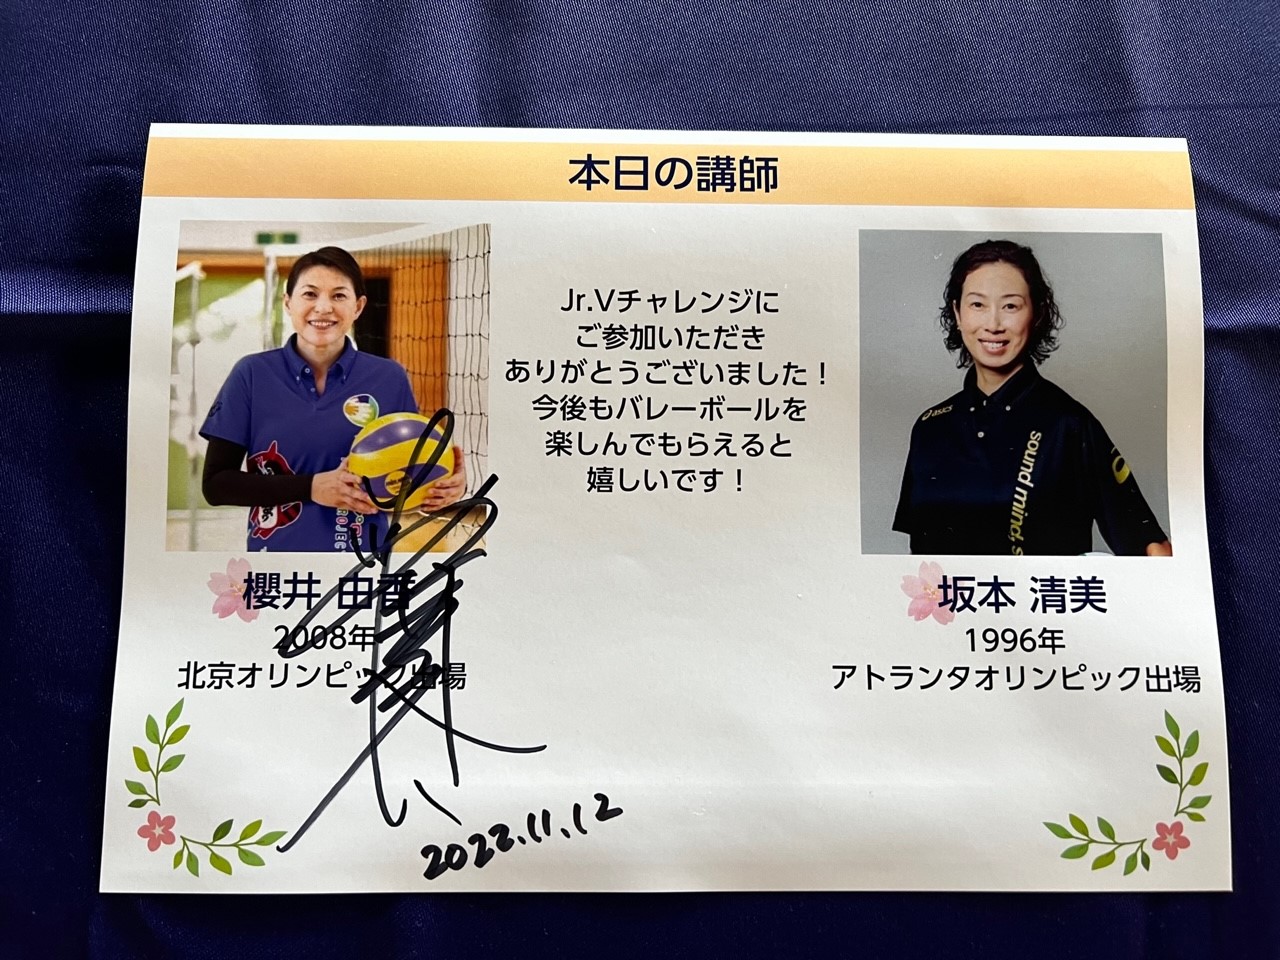 本日の講師
Jr.Vチャレンジに
ご参加いただき
ありがとうございました！
今後もバレーボールを
楽しんでもらえると
嬉しいです！
櫻井 由香
2008年
北京オリンピック出場
2022.11.12
asics
sound mind, s
坂本 清美
1996年
アトランタオリンピック出場